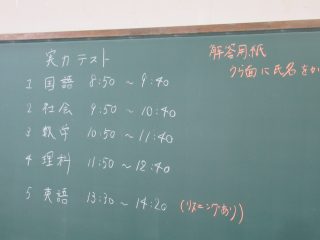 実力テスト
1 国語 8:50 〜 9:40
2 社会 9:50 〜 10:40
3 数学 10:50 〜 11:40
4 理科 11:50 〜 12:40
5 英語 13:30 〜 14:20 (リスニングあり)
解答用紙
うら面に氏名をか